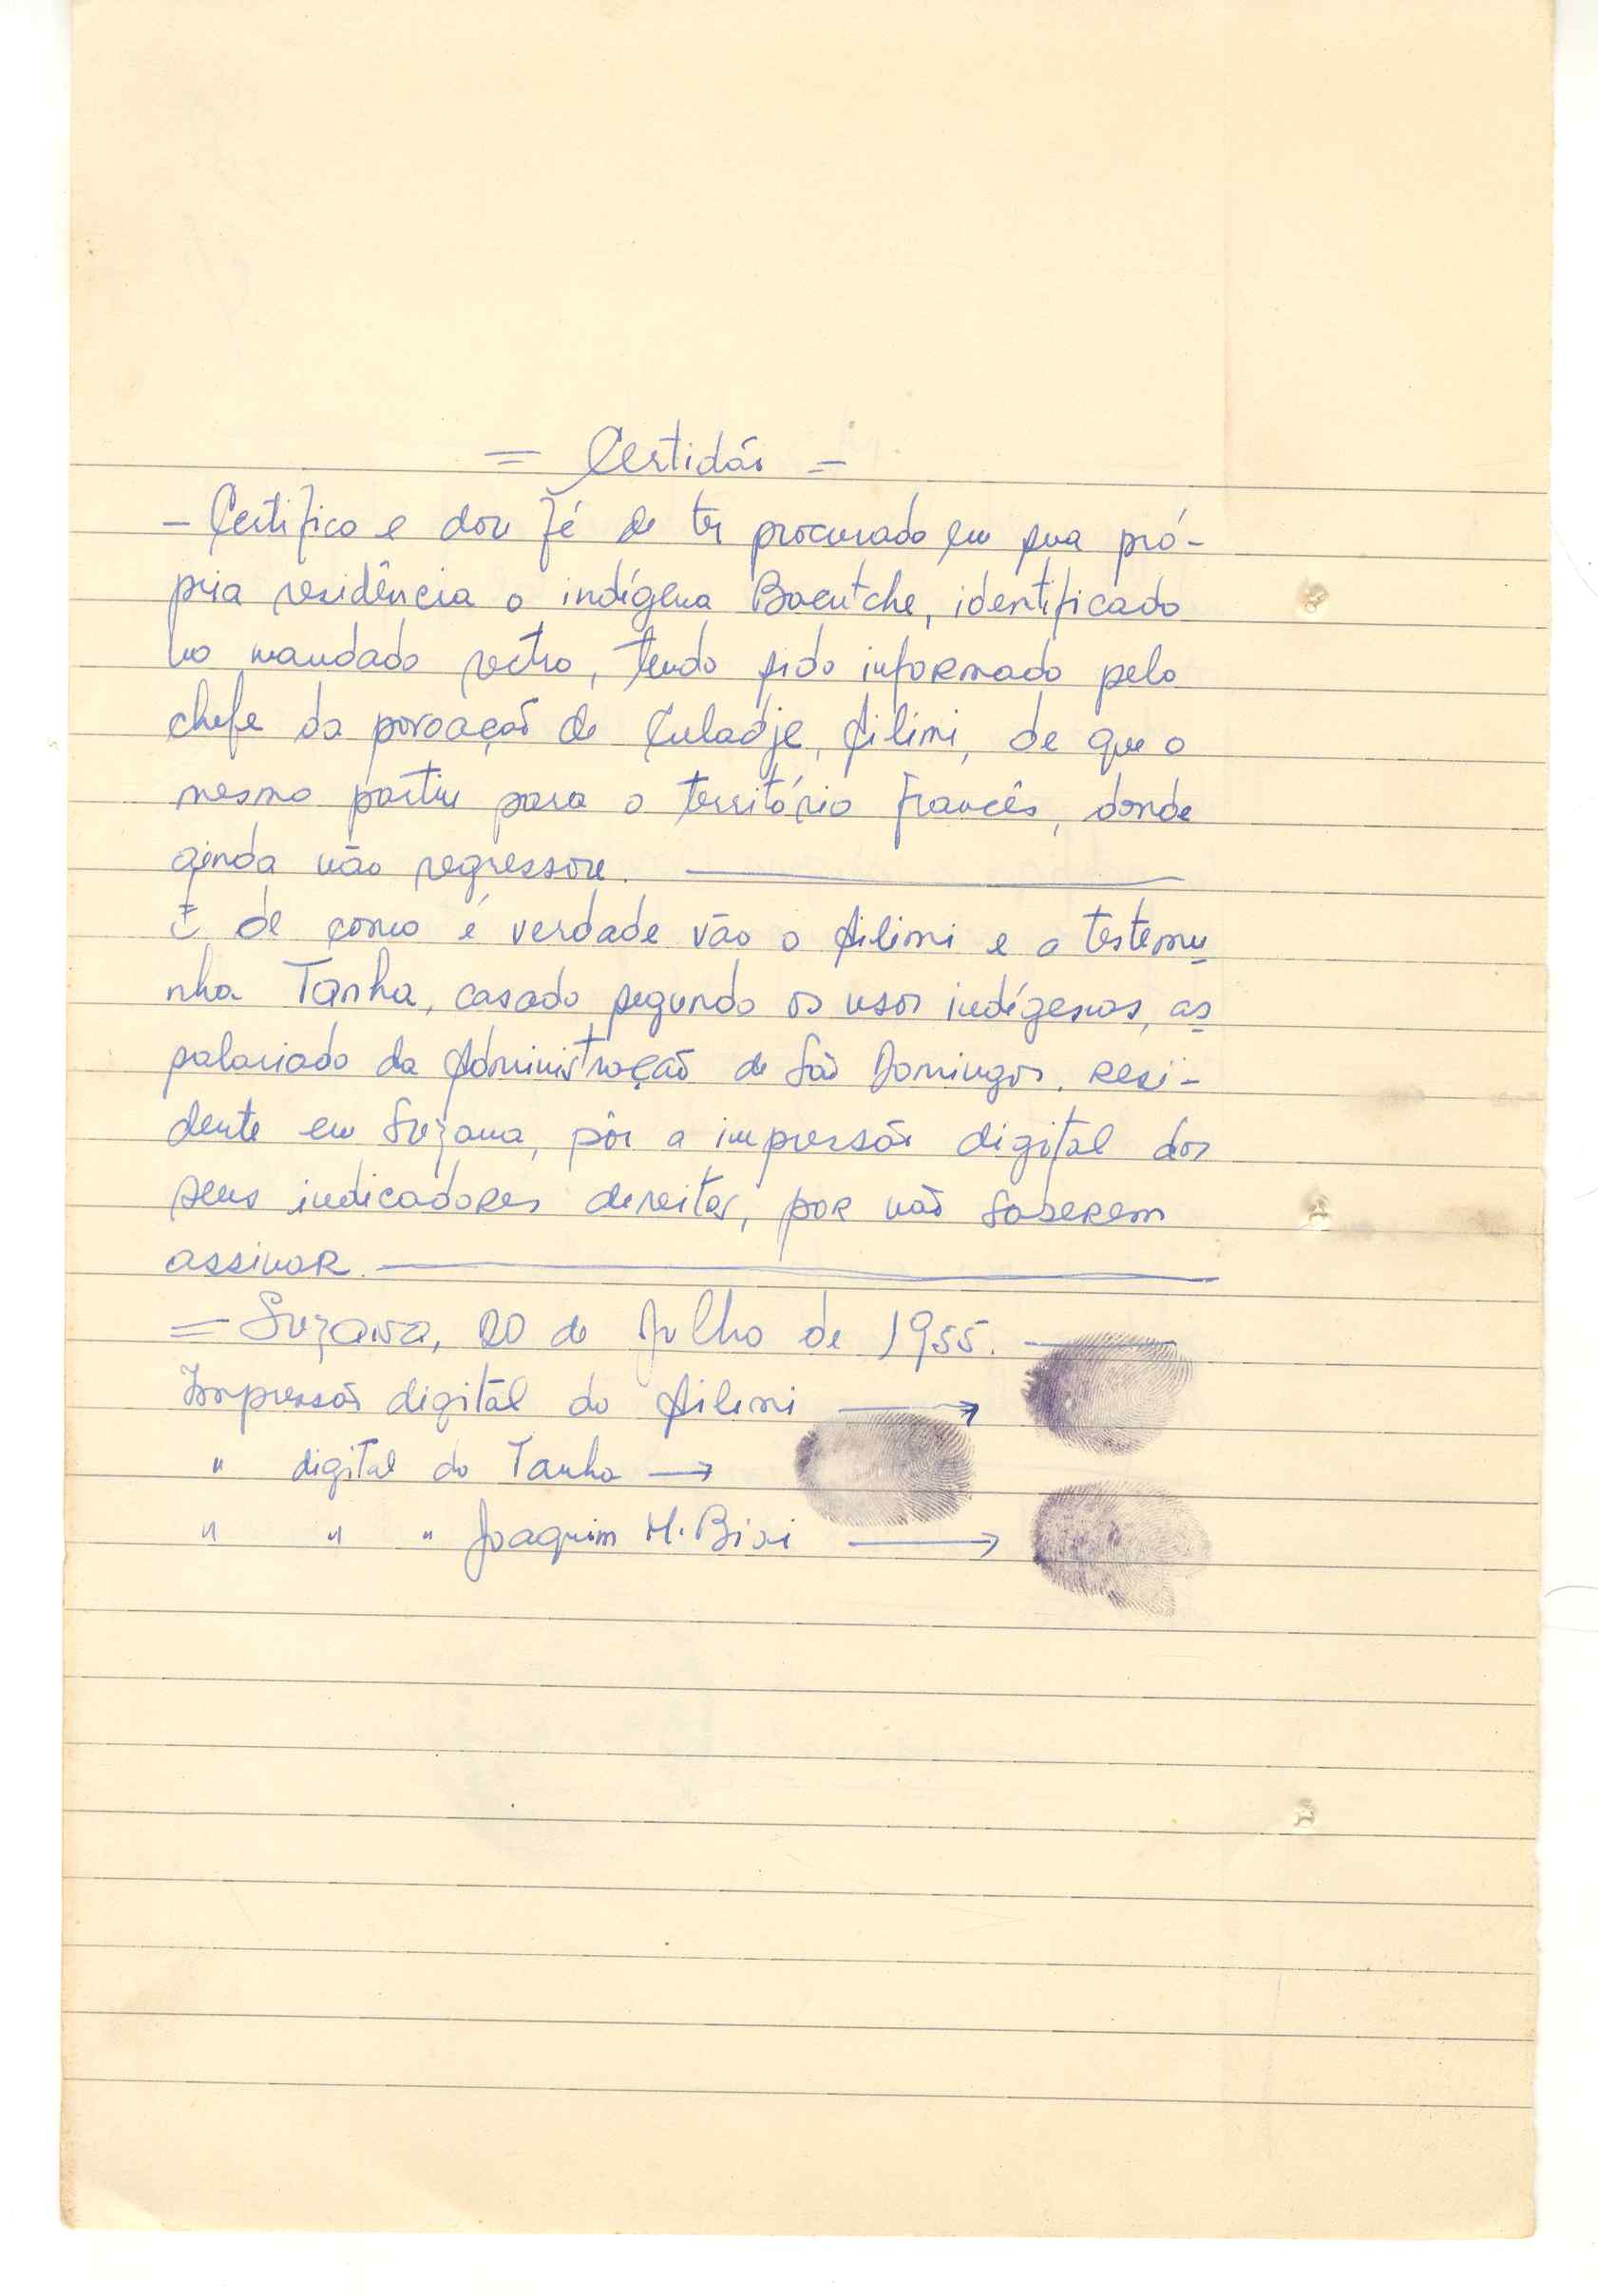 = Certidão =
- Certifico e dou fé de ter procurado em sua pró-
pria residência o indígena Baentche, identificado
no mandado retro, tendo sido informado pelo
chefe da povoação de Culadje, Ailimi, de que o
mesmo partiu para o território francês, donde
ainda não regressou.
E de como é verdade vão o Ailimi e a testemu
nha Tanha, casado segundo os usos indígenas, as
salariado da Administração de São Domingos, resi-
dente em Suzana, pôr a impressão digital dos
seus indicadores direitos, por não saberem
assinar.
= Suzana, 20 de Julho de 1955.
Impressão digital do Ailimi →
" digital do Tanha →
" " " Joaquim M. Bixi →